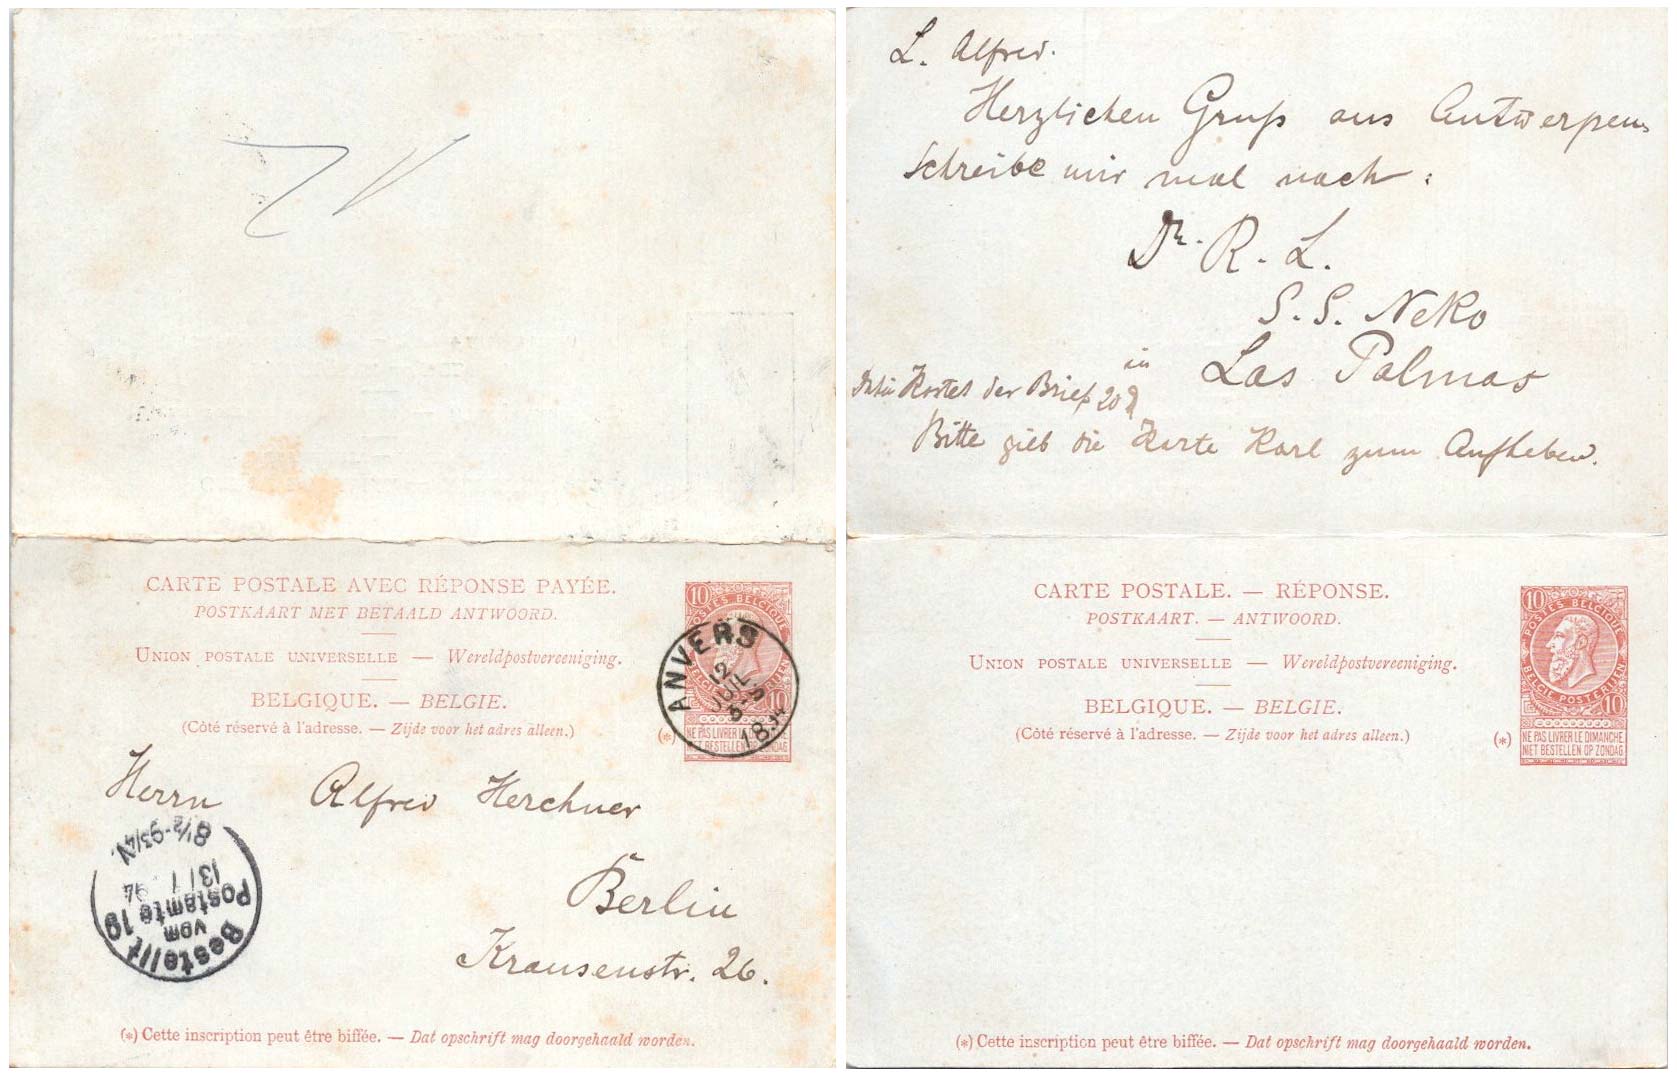 CARTE POSTALE AVEC RÉPONSE PAYÉE.
POSTKAART MET BETAALD ANTWOORD.
UNION POSTALE UNIVERSELLE — Wereldpostvereeniging.
BELGIQUE. — BELGIE.
(Côté réservé à l'adresse. — Zijde voor het adres alleen.)
10 POSTES BELGIQUE
BELGIE POSTERIJEN 10
(*)
NE PAS LIVRER LE DIMANCHE
NIET BESTELLEN OP ZONDAG
ANVERS
12
JUIL
Herrn Alfred Herchner
Berlin
Krausenstr. 26.
Bestellt
vom
Postamte 19
13/7 94
8½-9¾N.
(*) Cette inscription peut être biffée. — Dat opschrift mag doorgehaald worden.
L. Alfred.
Herzlichen Gruß aus Antwerpen.
Schreibe mir mal nach:
Dr. R. L.
S. S. Neko
in Las Palmas
Kostet der Brief 20
Bitte gieb die Karte Karl zum Aufheben.
CARTE POSTALE. — RÉPONSE.
POSTKAART. — ANTWOORD.
UNION POSTALE UNIVERSELLE — Wereldpostvereeniging.
BELGIQUE. — BELGIE.
(Côté réservé à l'adresse. — Zijde voor het adres alleen.)
10 POSTES BELGIQUE
BELGIE POSTERIJEN 10
(*)
NE PAS LIVRER LE DIMANCHE
NIET BESTELLEN OP ZONDAG
(*) Cette inscription peut être biffée. — Dat opschrift mag doorgehaald worden.